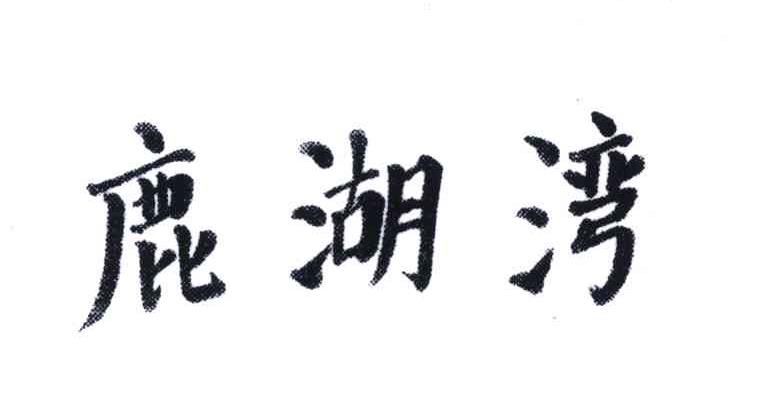 鹿湖湾